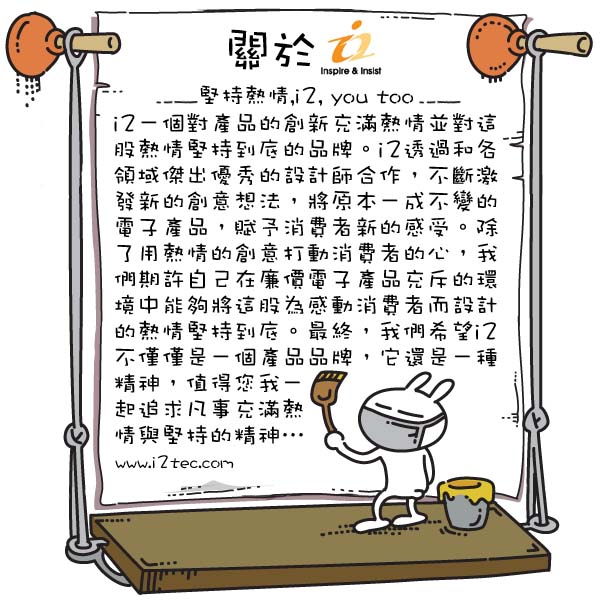 關於 i2
Inspire & Insist
堅持熱情,i2, you too
i2一個對產品的創新充滿熱情並對這
股熱情堅持到底的品牌。i2透過和各
領域傑出優秀的設計師合作，不斷激
發新的創意想法，將原本一成不變的
電子產品，賦予消費者新的感受。除
了用熱情的創意打動消費者的心，我
們期許自己在廉價電子產品充斥的環
境中能夠將這股為感動消費者而設計
的熱情堅持到底。最終，我們希望i2
不僅僅是一個產品品牌，它還是一種
精神，值得您我一
起追求凡事充滿熱
情與堅持的精神…
www.i2tec.com